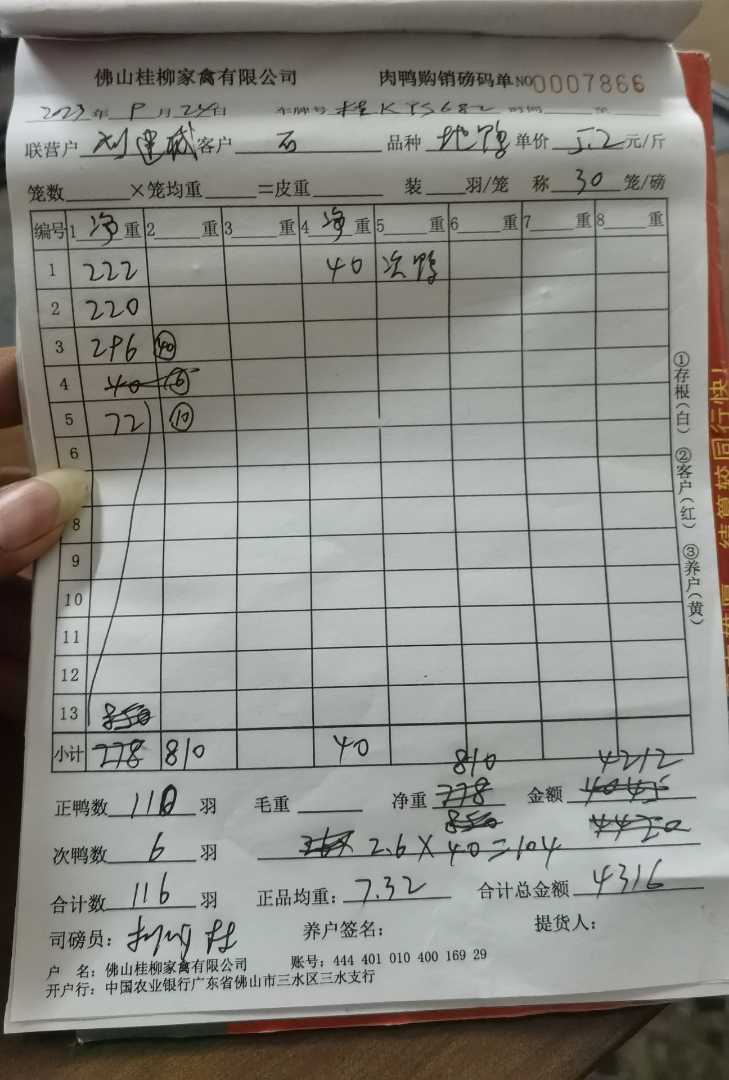 佛山桂柳家禽有限公司 肉鸭购销磅码单 NO 0007866
2023年9月24日 车牌号 桂K
联营户 刘建 客户 石 品种 地鸭 单价 5.2 元/斤
笼数 ×笼均重 =皮重 装 羽/笼 称 30 笼/磅
编号 1 净重 2 重 3 重 4 净重 5 重 6 重 7 重 8 重
1 222 40 次鸭
2 220
3 296 40
4 40 6
5 72 10
6
8
9
10
11
12
13 850
小计 778 810 40
810 4212
正鸭数 110 羽 毛重 净重 778 金额 4045
850 4420
次鸭数 6 羽 2.6×40=104
合计数 116 羽 正品均重: 7.32 合计总金额 4316
司磅员: 养户签名: 提货人:
户 名: 佛山桂柳家禽有限公司 账号: 444 401 010 400 169 29
开户行: 中国农业银行广东省佛山市三水区三水支行
①存根(白) ②客户(红) ③养户(黄)